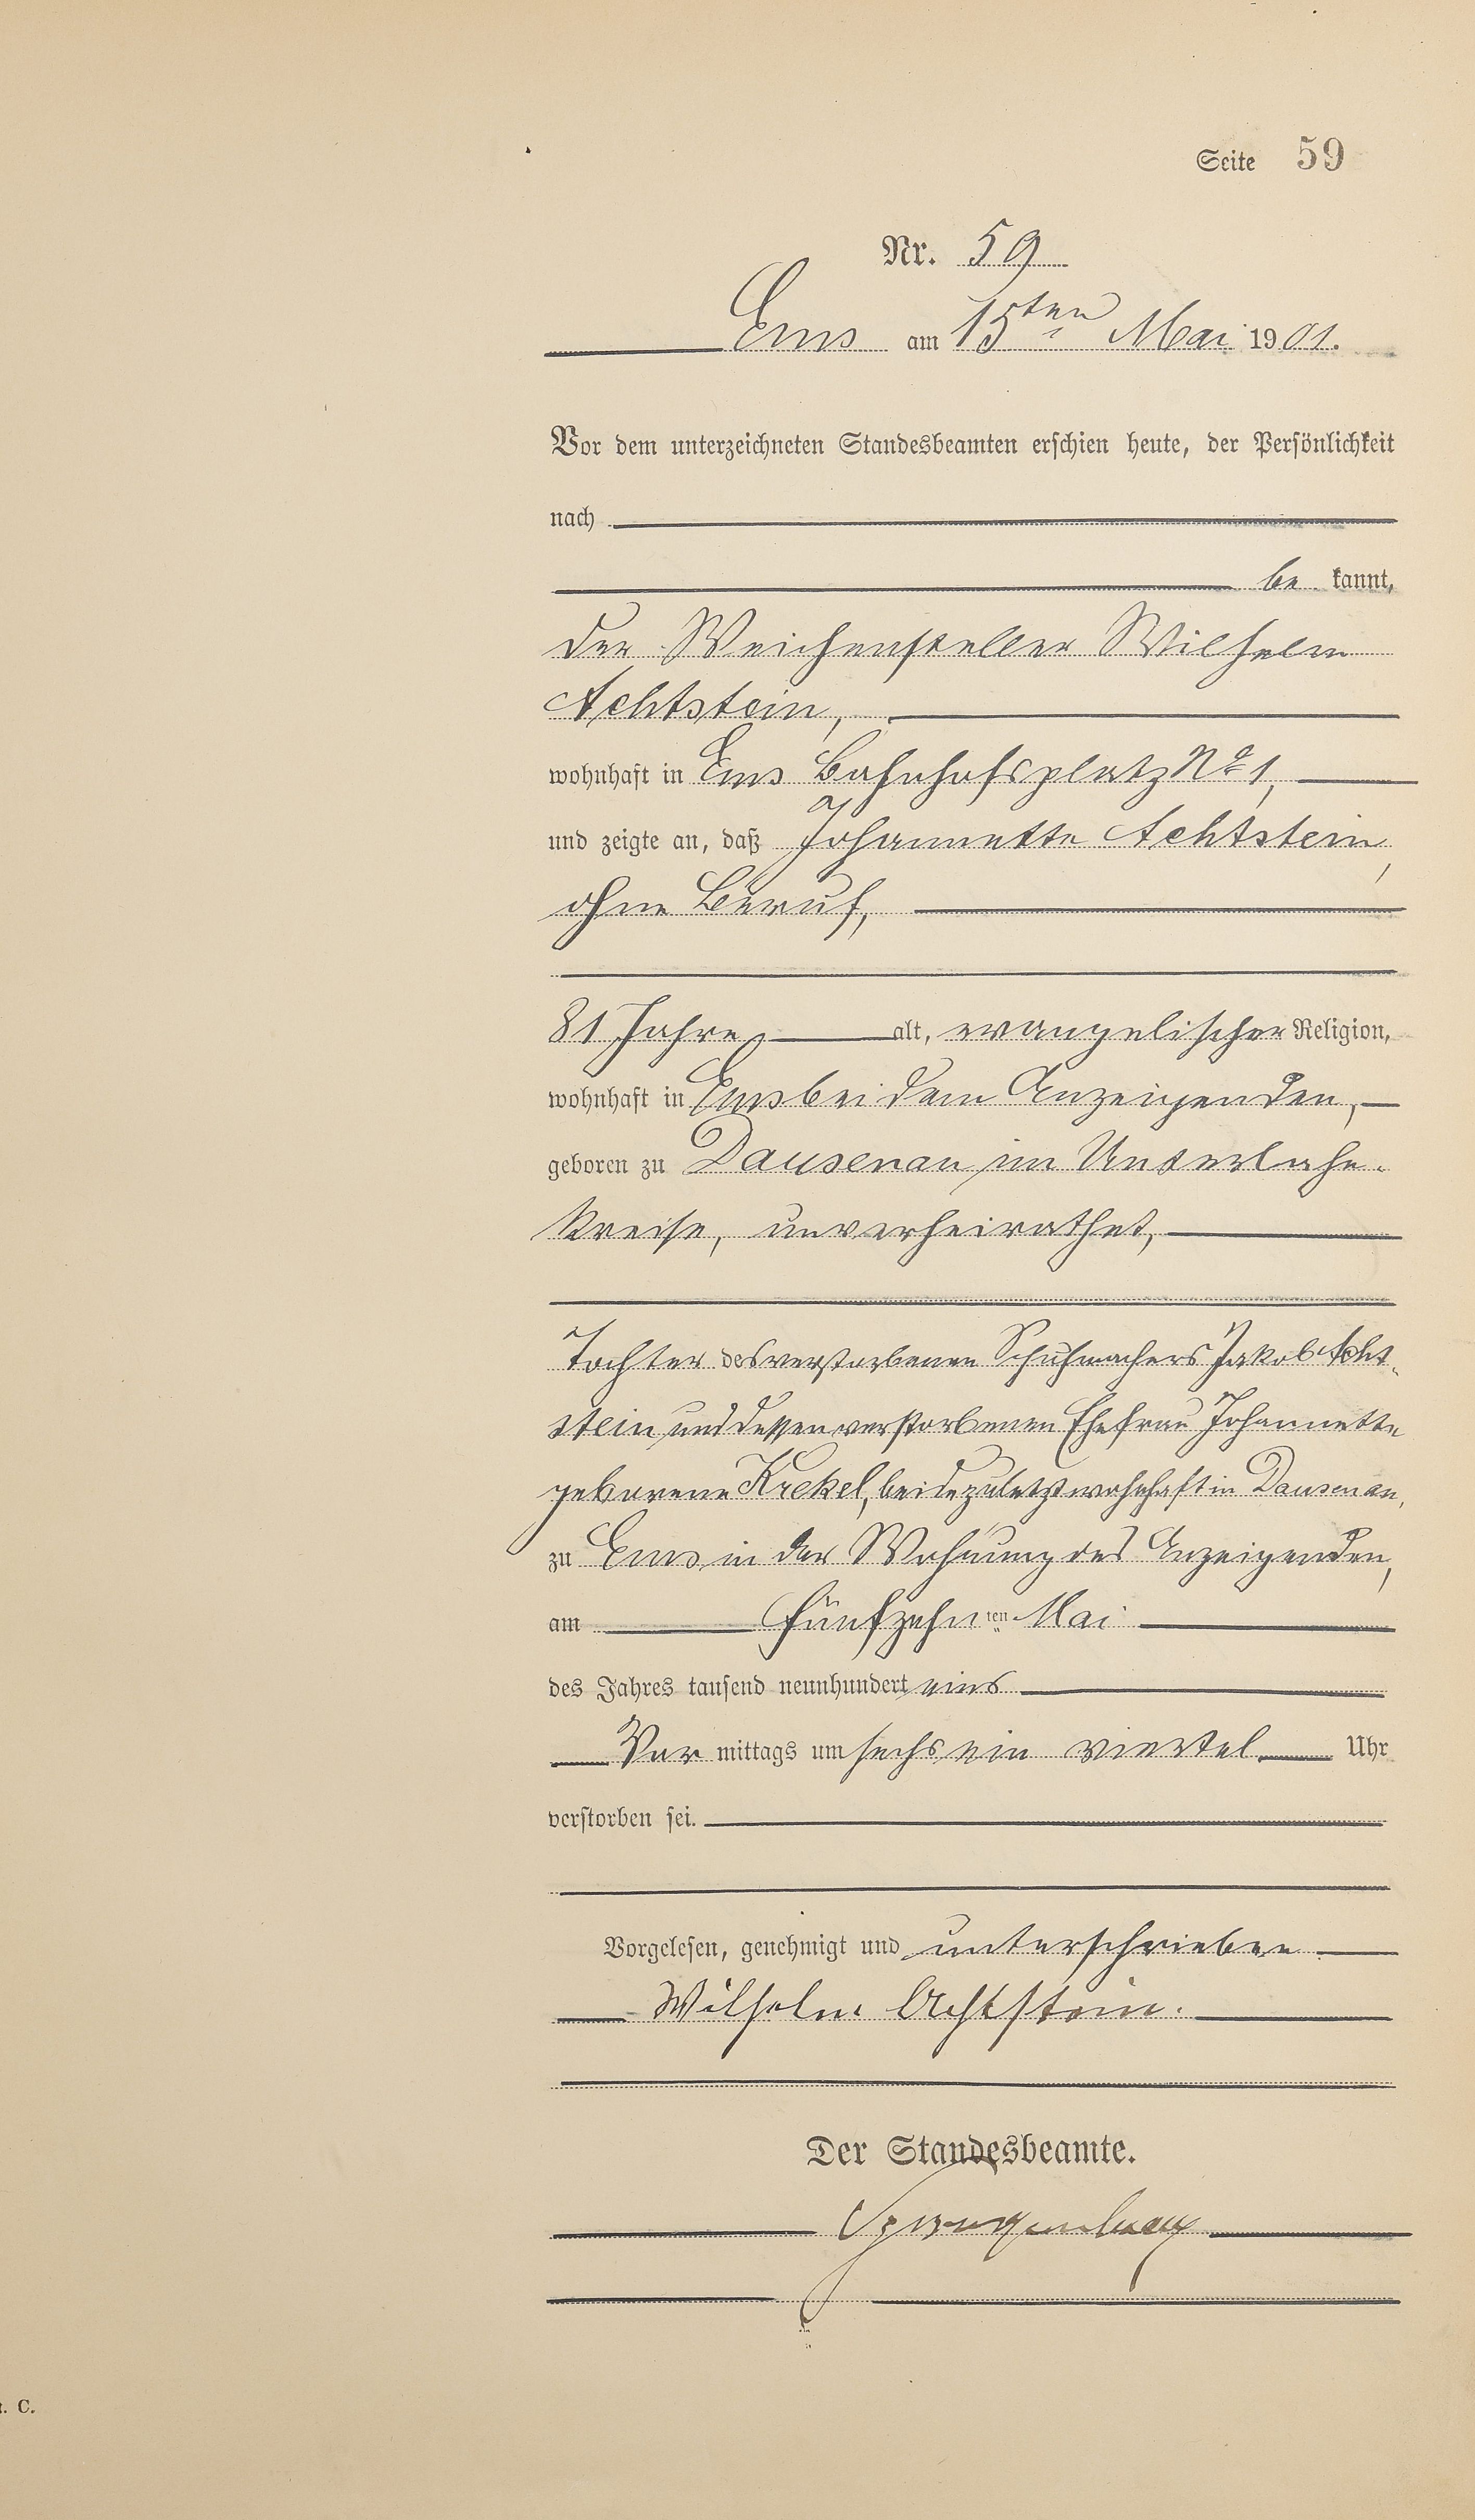 Seite 59
Nr. 59
Ems am 15ten Mai 1901.
Vor dem unterzeichneten Standesbeamten erschien heute, der Persönlichkeit
nach
be kannt,
der Weichensteller Wilhelm
Achtstein,
wohnhaft in Ems Bahnhofsplatz No 1,
und zeigte an, daß Johannette Achtstein,
ohne Beruf,
81 Jahre alt, evangelischer Religion,
wohnhaft in Ems bei dem Anzeigenden,
geboren zu Dausenau im Unterlahn-
kreise, unverheirathet,
Tochter des verstorbenen Schuhmachers Jakob Acht-
stein und dessen verstorbenen Ehefrau Johannette
geborene Krekel, beide zuletzt wohnhaft in Dausenau,
zu Ems in der Wohnung des Anzeigenden,
am fünfzehnten Mai
des Jahres tausend neunhundert eins
Vor mittags um sechs ein viertel Uhr
verstorben sei.
Vorgelesen, genehmigt und unterschrieben
Wilhelm Achtstein.
Der Standesbeamte.
C.